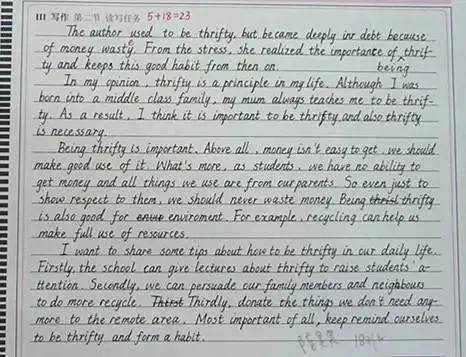 III 写作 第二节 读写任务 5+18=23
The author used to be thrifty, but became deeply in debt because
of money wasty. From the stress, she realized the importance of being thrif-
ty and keeps this good habit from then on.
In my opinion, thrifty is a principle in my life. Although I was
born into a middle class family, my mum always teaches me to be thrif-
ty. As a result, I think it is important to be thrifty and also thrifty
is necessary.
Being thrifty is important. Above all, money isn't easy to get, we should
make good use of it. What's more, as students, we have no ability to
get money and all things we use are from our parents. So even just to
show respect to them, we should never waste money. Being thrifty
is also good for enviroment. For example, recycling can help us
make full use of resources.
I want to share some tips about how to be thrifty in our daily life.
Firstly, the school can give lectures about thrifty to raise students' a-
ttention. Secondly, we can persuade our family members and neighbours
to do more recycle. Thirdly, donate the things we don't need any-
more to the remote area. Most important of all, keep remind ourselves
to be thrifty and form a habit.